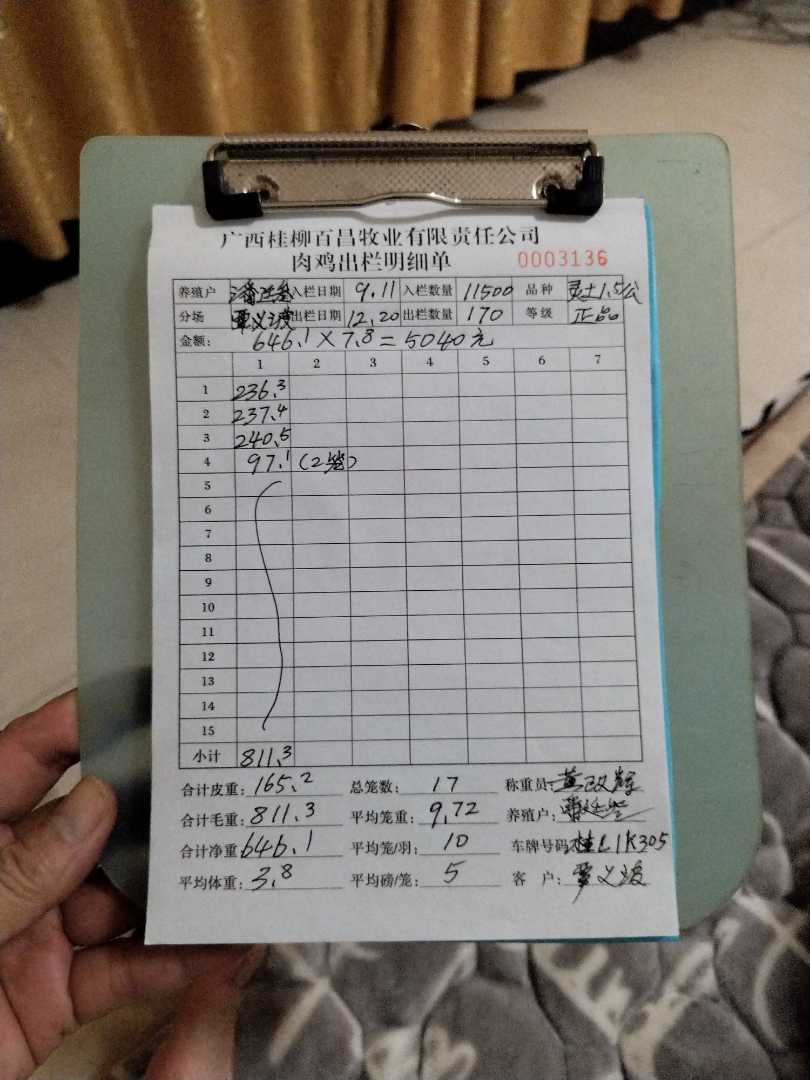 广西桂柳百昌牧业有限责任公司
肉鸡出栏明细单 0003136
养殖户 入栏日期 9.11 入栏数量 11500 品种 灵土1.5公
分场 覃义波 出栏日期 12.20 出栏数量 170 等级 正品
金额: 646.1×7.8=5040元
1 2 3 4 5 6 7
1 236.3
2 237.4
3 240.5
4 97.1 (2笼)
5
6
7
8
9
10
11
12
13
14
15
小计 811.3
合计皮重: 165.2 总笼数: 17 称重员: 黄政辉
合计毛重: 811.3 平均笼重: 9.72 养殖户:
合计净重 646.1 平均笼/羽: 10 车牌号码: 桂L1K305
平均体重: 3.8 平均磅/笼: 5 客户: 覃义波